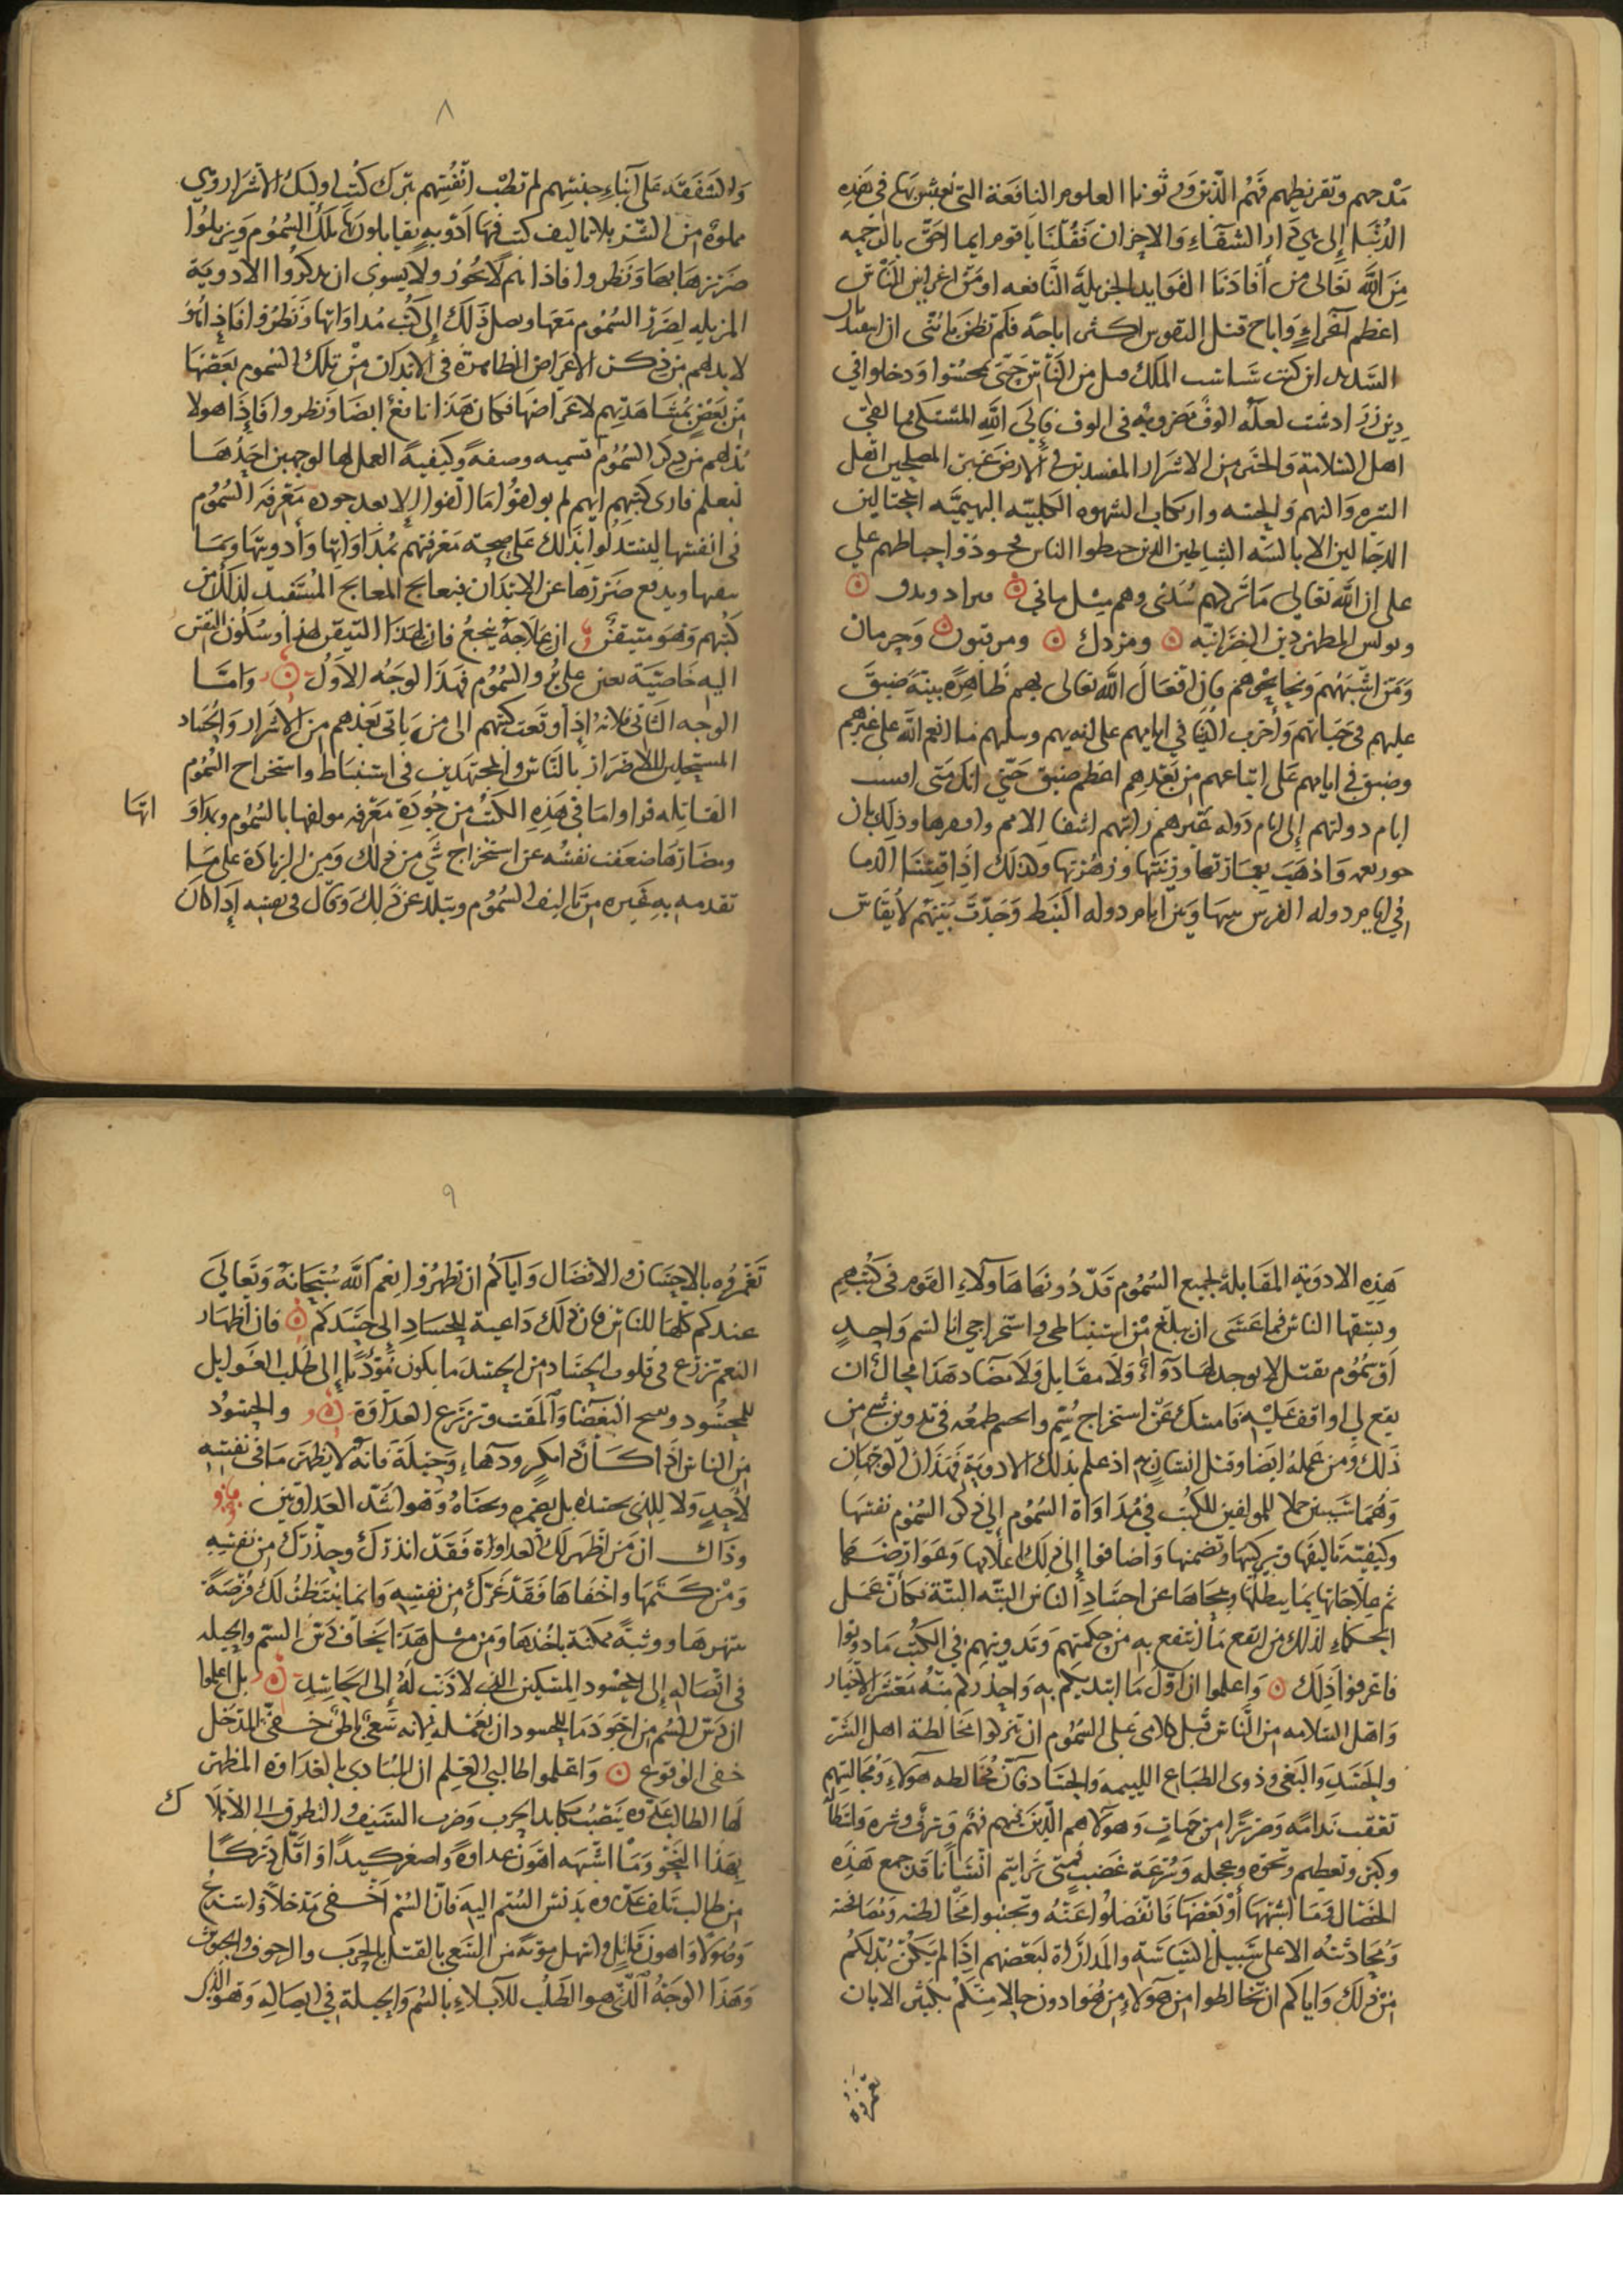 مدحهم وتقريظهم فهم الذين ورثونا العلوم النافعة التي نعيش بها في هذه
الدنيا إلى في دار الشقاء والاحزان فقلنا ياقوم ايما احق بالترحيه
من الله تعالى من أفادنا الفوايد الجزيلة النافعه او من اغرا بين الناس
اعظم اغراء واباح قتل النفوس اكثر اباحة فلم تظن يا بني ان اسفنديار
السديد ابن كشتاسب الملك قتل من الناس حتى تمجسوا ودخلوا في
دين زرادشت لعله الوف مضروبه في الوف فإلى الله المشتكى مما لقي
اهل السلامة والخير من الاشرار المفسدين في الارض غير المصلحين اهل
الشره والنهم والخسه وارتكاب الشهوه الكلبيه البهيميه المحتالين
الدجالين الابالسه الشياطين الذين حيطوا الناس احباطهم علي
على ان الله تعالى ما تركهم سدى وهم مثل ماني
وبولس المطهر دين النصرانيه ومزدك ومرقيون وجرمان
ومن اشبههم ونحا نحوهم فان افعال الله تعالى بهم ظاهرة بينة ضيق
عليهم في حياتهم وأخرب الدنيا في ايامهم على ايديهم وسلبهم ما انعم الله على غيرهم
وضيق في ايامهم على اتباعهم من بعدهم اعظم ضيق حتى انك متى
ايام دولتهم إلى ايام دولة غيرهم رايتهم اشقا الامم وافقرها وذلك بان
واذهب بعمارتها وزينتها وزهرتها ولذلك اذا قسنا الدنيا
في ايام دوله الفرس بها وبين ايام دوله النبط وجدت بينهم لا يقاس
٨
والشفقه على أبناء جنسهم لم تطب انفسهم بترك كتب اوليك الاشرار وهي
مملوة من الشر بلا تاليف كتب فيها ادويه يقابلون بها تلك السموم ويزيلوا
ضررها بها ونظروا فاذا انه لا يجوز ولا يسوى ان يذكروا الادوية
المزيله لضرر السموم معها ويصل ذلك إلى كتب مداواتها ونظروا فاذا انه
لا بد لهم من ذكر الاعراض الظاهرة في الابدان من تلك السموم بعضها
من بعض بمشاهدتهم لاعراضها فكان هذا نافع ايضا ونظروا فاذا هولا
بد لهم من ذكر السموم تسميه وصفة وكيفية العمل لها لوجهين احدهما
ليعلم قارئ كتبهم انهم لم يولفوا ما الفوا إلا بعد جودة معرفة السموم
في انفسها ليستدلوا بذلك على صحة معرفتهم بمداواتها وأدويتها وبما
ويدفع ضررها عن الابدان فيعالج المعالج المستفيد لذلك من
كتبهم وهو متيقن ان علاجه ينجع فان لهذا التيقن لهذا وسكون النفس
اليه خاصية يعني على برو السموم فهذا الوجه الاول واما
الوجه الثاني فلانه إذا وقعت كتبهم الى من ياتي بعدهم من الاشرار والحساد
المستحلين للاضرار بالناس والمجتهدين في استنباط واستخراج السموم
القاتله قراوا ما في هذه الكتب من جودة معرفه مولفها بالسموم وبمداو اتها
ومضارها ضعفت نفسه عن استخراج شي من ذلك وبين الزيادة على ما
تقدمه به غيره من تاليف السموم وتبلد عن ذلك وقال في نفسه إذا كان
هذه الادوية المقابلة لجميع السموم قد دونها هاولاء القوم في كتبهم
وسبقها الناس فما عسى ان يبلغ من استنباطي واستخراجي انا لسم واحد
او سموم يقتل لا يوجد لها دواء ولا مقابل ولا مضاد هذا محال ان
يقع لي اواقف عليه فامسك عن استخراج سم وانحسم طمعه في تدوين شي من
ذلك ومن عمله ايضا وقتل انسان به اذ علم بذلك الادوية فهذان الوجهان
وهما سببين حملا المولفين للكتب في مداواة السموم إلى ذكر السموم نفسها
وكيفية تاليفها وتركيبها وتضمنها واضافوا إلى ذلك اعلامها وعوارضها
ثم علاجاتها بما يبطلها ومحاها عن اجساد الناس البته البتة فكان عمل
الحكماء لذلك من انفع ما انتفع به من حكمتهم وتدوينهم في الكتب ما دونوا
فاعرفوا ذلك واعلموا ان اول ما ابتديكم به واحذركم منه معشر الاخيار
واهل السلامه من الناس قبل كلامي على السموم ان تتركوا مخالطة اهل الشر
والحسد والبغي وذوى الطباع الليمه والحساد فان مخالطه هولاء ومجالستهم
تعقب ندامة وضررا من جهات وهولاء هم الذين فيهم نهم وشره
وكبر وتعظيم ونخوه وعجله وسرعة غضب فمتى رايتم انسانا قد جمع هذه
الخصال وما اشبهها أو بعضها فانفصلوا عنه وتجنبوا مخالطته ومصافحته
ومحادثته الا على سبيل السياسة والمداراة لبعضهم اذا لم يكن بد لكم
من ذلك واياكم ان تخالطوا من هولاء من هو ادون حالا منكم بكثير الا بان
تغمروه
٩
تغمروه بالاحسان والافضال واياكم ان تظهروا نعم الله سبحانه وتعالى
عندكم كلها للناس فان ذلك داعية للحساد إلى حسدكم فان اظهار
النعم تزرع في قلوب الحساد من الحسد ما يكون مؤديا إلى طلب الغوايل
للمحسود البغضا والمقت وتزرع العداوة والحسود
من الناس اذا كان ذا مكر ودهاء وحيلة فانه لا يظهر ما في نفسه
لأحد ولا للذي يحسده بل يضمره وهو اشد العداوتين
وذاك ان من اظهر لك العداوة فقد انذرك وحذرك من نفسه
ومن كتمها واخفاها فقد غرك من نفسه وانما ينتظر لك فرصة
ينتهزها ووثبة ممكنة ياخذها ومن مثل هذا يخاف دس السم والحيله
في اتصاله إلى المحسود المسكين الذي لا ذنب له إلى الحاسد بل اعلموا
ان دس السم من اجود ما للحسود ان يعمله لانه شي خفي المدخل
خفي الوقوع واعلموا طالبي العلم ان المبادي بالعداوة المظهر
لها الطالب علانيه مكابد الحرب وضرب السيف والتطرق الى الابلا ك
بهذا النحو وما اشبهه اهون عداوة واصغر كيدا واقل دركا
من طالب تلف عدوه بدس السم اليه فان السم اخفى مدخلا واسرع
وصولا واهون قاتل واسهل مؤنه من السعي بالقتل بالحرب
وهذا الوجه الذي هو الطلب للابلاء بالسم والحيلة في ايصاله وهو الذي